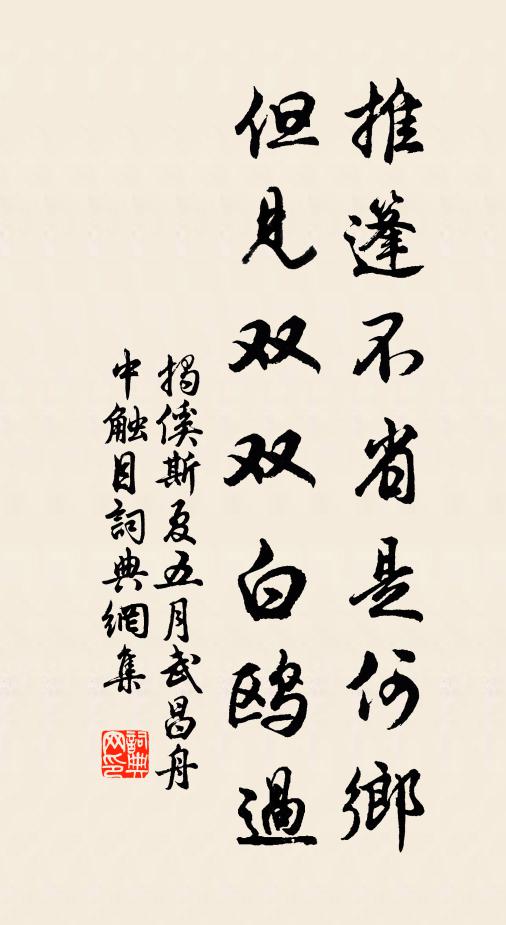 推蓬不省是何鄉
但见双双白鸥過
揭傒斯夏五月武昌舟
中触目詞典網集
詞典
网印